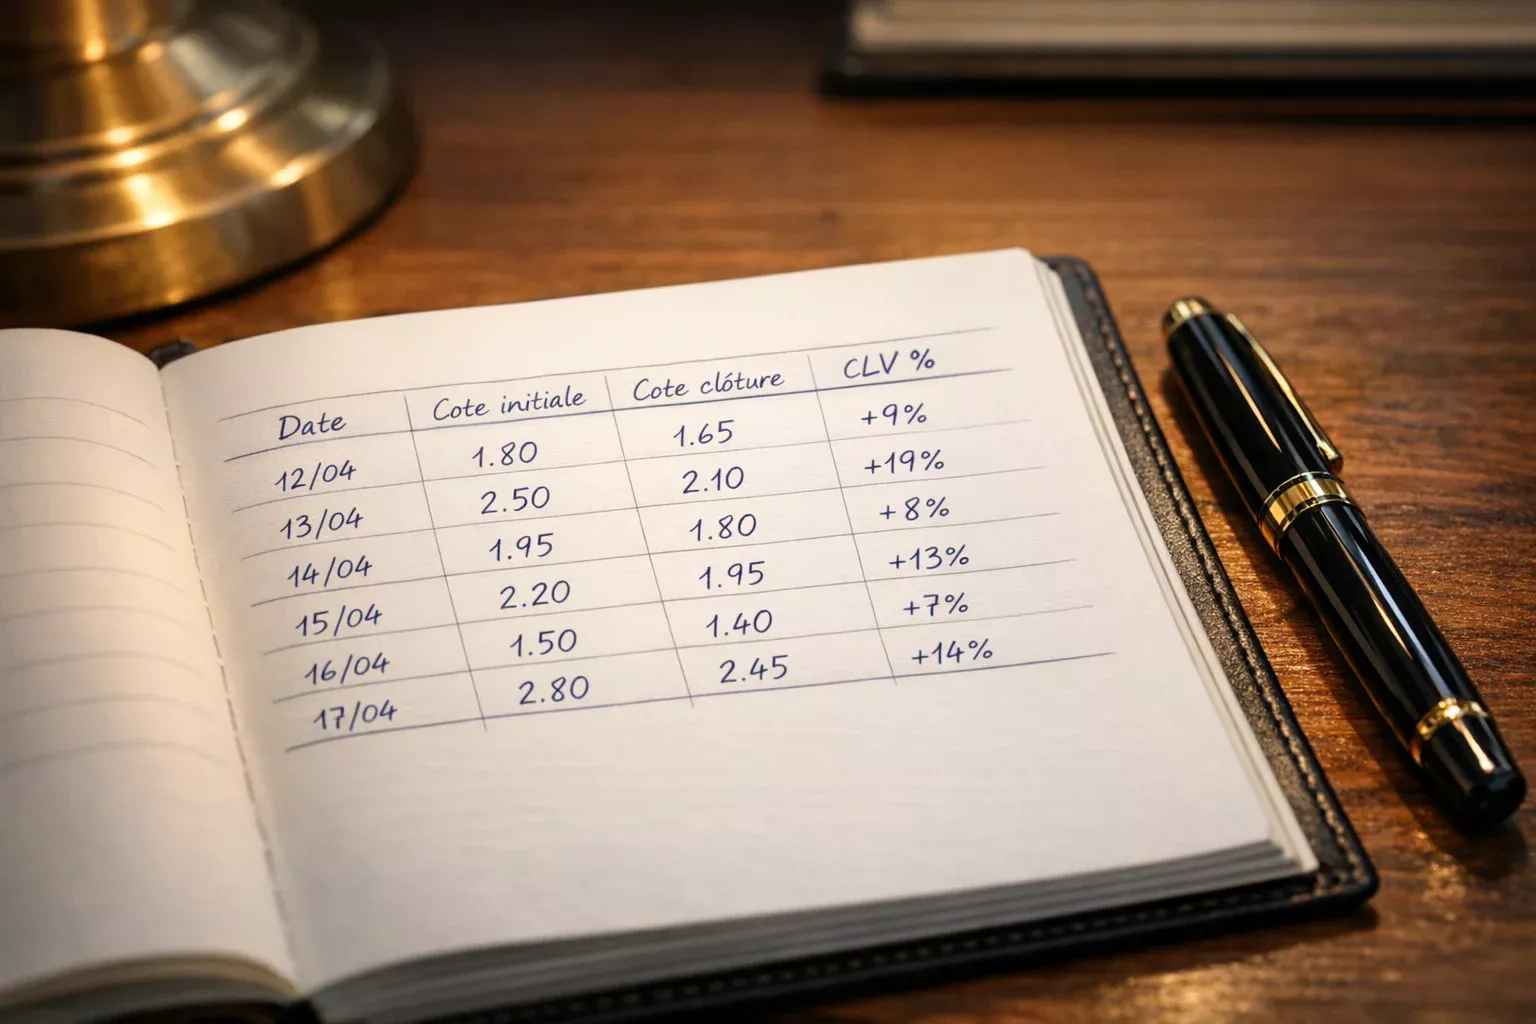 Date Cote initiale Cote clóture CLV %
12/04 1.80 1.65 +9%
13/04 2.50 2.10 +19%
14/04 1.95 1.80 +8%
15/04 2.20 1.95 +13%
16/04 1.50 1.40 +7%
17/04 2.80 2.45 +14%